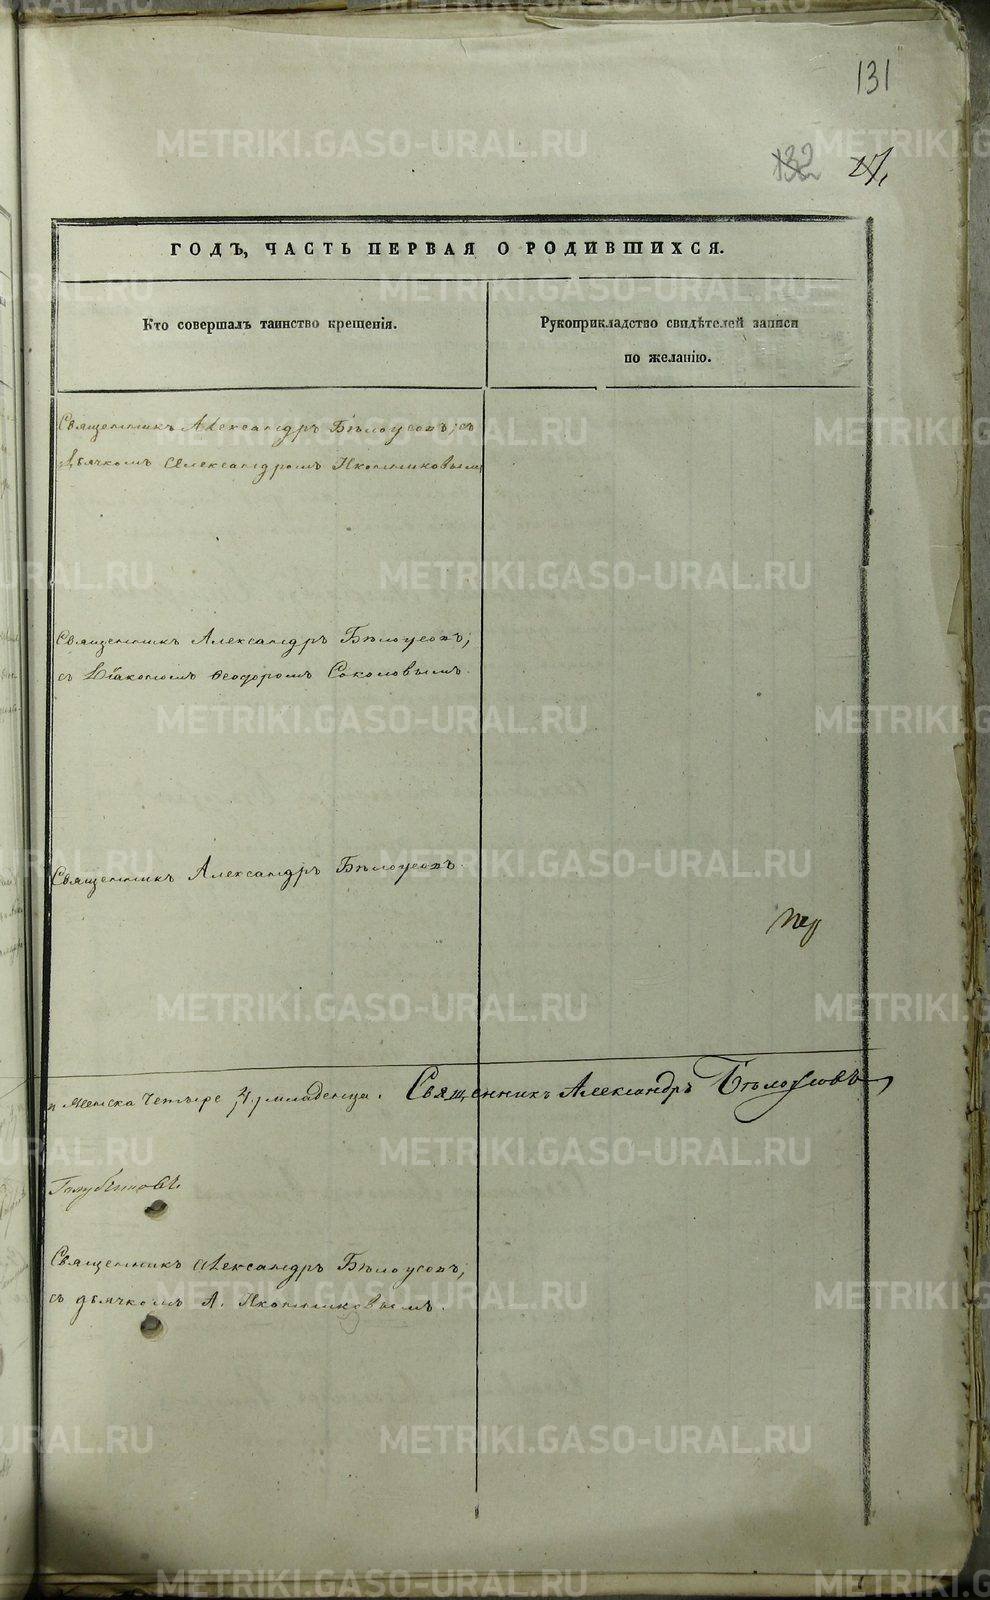 131
132
27,
ГОДЪ, ЧАСТЬ ПЕРВАЯ О РОДИВШИХСЯ.
Кто совершалъ таинство крещенія.
Рукоприкладство свидѣтелей записи
по желанію.
Священникъ Александръ Бѣлоусовъ; съ
Дьячкомъ Александромъ Иконниковымъ
Священникъ Александръ Бѣлоусовъ;
съ Діакономъ Ѳеодоромъ Соколовымъ.
Священникъ Александръ Бѣлоусовъ.
и женска четыре 4, младенца. Священникъ Александръ Бѣлоусовъ
Голубчиковъ.
Священникъ Александръ Бѣлоусовъ;
съ дьячкомъ А. Иконниковымъ.
METRIKI.GASO-URAL.RU